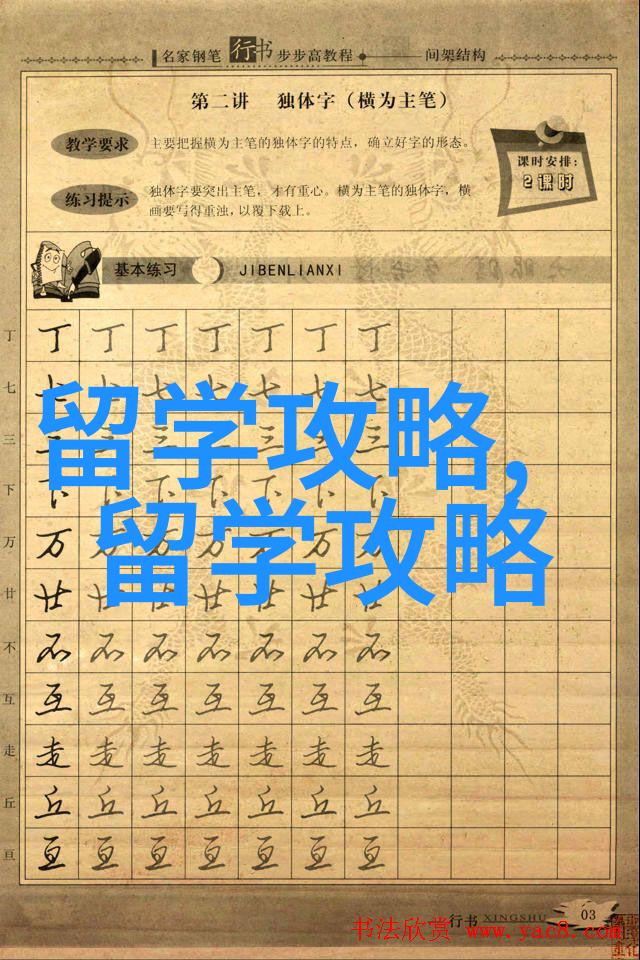 名家钢笔 行书 步步高教程 间架结构
第二讲 独体字（横为主笔）
教学要求 主要把握横为主笔的独体字的特点，确立好字的形态。
课时安排：
2课时
练习提示 独体字要突出主笔，才有重心。横为主笔的独体字，横
画要写得重浊，以覆下载上。
基本练习 JIBENLIANXI
丁 丁 丁 丁 丁 丁 丁 丁
七 七 七 七 七 七 七 七
留学攻略，
三 三 三 三 三
下 下 下 下 下 下 下 下
留学攻略
万 万 万 万 万 万 万 万
廿 廿 廿 廿 廿 廿 廿 廿
不 不 不 不 不 不 不 不
互 互 互 互 互 互 互 互
走 走 走 走 走 走 走 走
丘 丘 丘 丘 丘 丘 丘 丘
亘 亘 亘 亘 亘 亘 亘 亘
行书 XINGSHU 03
书法欣赏 www.yac8.com